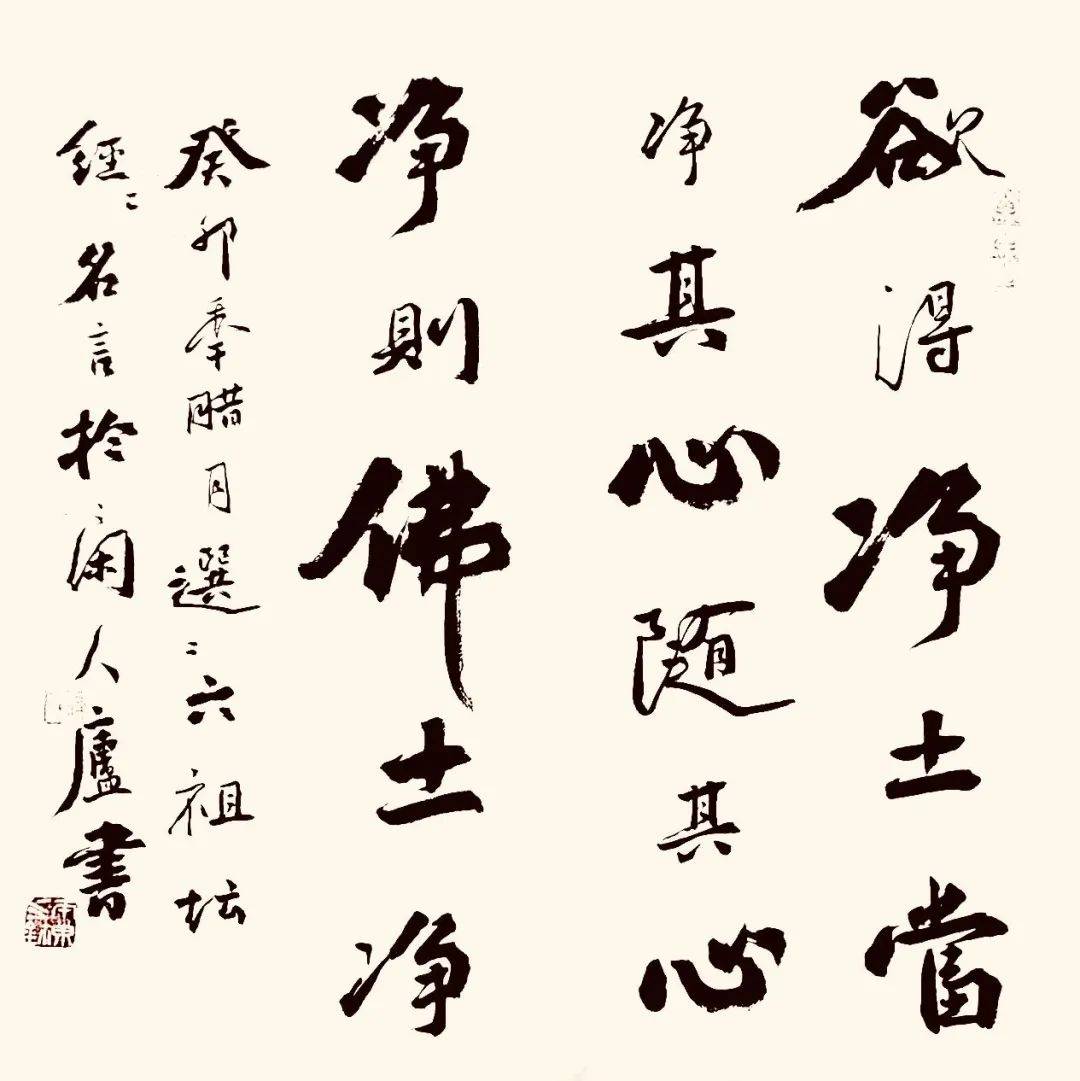 欲得净土當
净其心随其心
净則佛土净
癸卯季腊月選〻六祖坛
經〻名言於闲人廬書